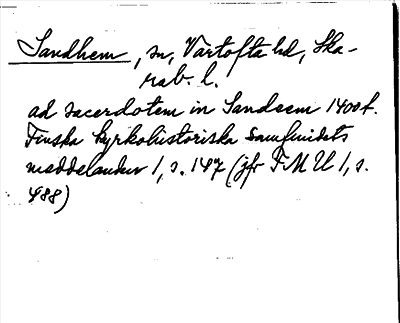 Sandhem, sn, Vartofta hd, Ska-
rab. l.
ad sacerdotem in Sandeem 1400 f.
Finska kyrkohistoriska samfundets
meddelanden 1, s. 147 (jfr F M U 1, s.
488)